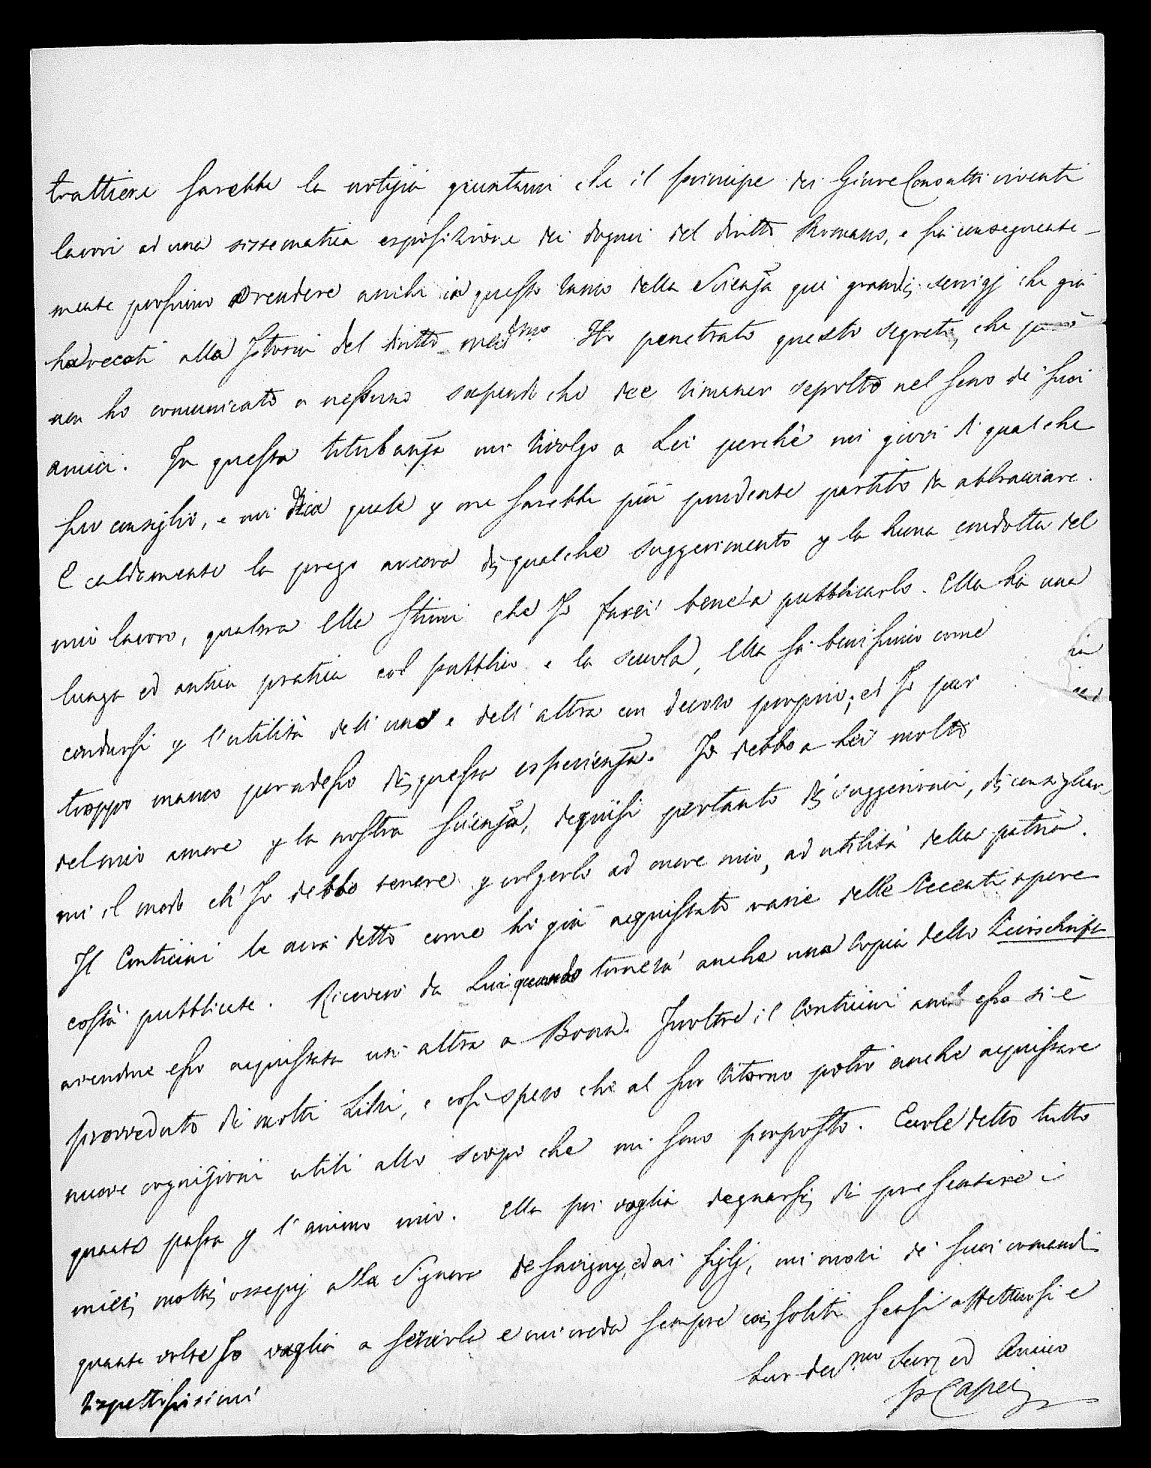 trattiene sarebbe la notizia giuntami che il principe dei GiureConsulti viventi
lavori ad una sistematica esposizione dei dogmi del diritto Romano, e sia conseguente-
mente prossimo a rendere anche in questo ramo della Scienza qui grandi servigj che già
ha recati alla Storia del diritto medmo Ho penetrato questo segreto, che però
non ho comunicato a nessuno sapendo che dee rimaner sepolto nel seno de' suoi
amici. In questa titubanza mi rivolgo a Lei perchè mi giovi di qualche
suo consiglio, e mi dica quale p me sarebbe più prudente partito da abbracciare.
E caldamente la prego ancora di qualche suggerimento p la buona condotta del
mio lavoro, qualora Ella stimi che Io farei bene a pubblicarlo. Ella ha una
lunga ed antica pratica col pubblico e la scuola, Ella sa benissimo come
condursi p l'utilità dell'uno e dell'altra con decoro proprio; ed Io pur
troppo manco peradesso di questa esperienza. Io debbo a Lei molto
del mio amore p la nostra scienza, degnisi pertanto di suggerirmi, di consigliar-
mi il modo ch' Io debbo tenere p volgerlo ad onore mio, ad utilità della patria.
Il Conticini le avrà detto come ho già acquistato varie delle recenti opere
costà pubblicate. Riceverò da Lui quando tornerà anche una copia dello
avendone esso acquistata un' altra a Bonna. Inoltre il Conticini anch' esso si è
provveduto di molti Libri, e così spero che al suo ritorno potrò anche acquistare
nuove cognizioni utili allo scopo che mi sono proposto. Eccole detto tutto
quanto passa p l'animo mio. Ella poi voglia degnarsi di presentare i
miei molti ossequj alla Signora de Savigny, ed ai figlj, mi onori de' suoi comandi
quante volte Io voglia a servirla e mi creda sempre coi soliti sensi affettuosi e
rispettosissimi
Suo devmo Serv ed Amico
P Capei